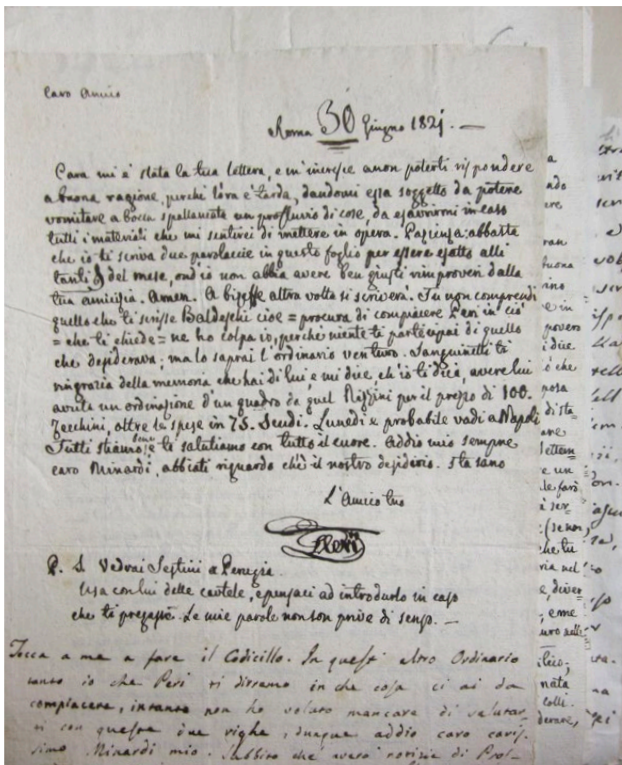 Caro Amico
Roma 30 Giugno 1821. —
Cara mi è stata la tua lettera, e m'incresce a non poterti rispondere
a buona ragione, perchè l'ora è tarda, dandomi essa soggetto da potere
vomitare a bocca spallancata un profluvio di cose, da esaurirmi in caso
tutti i materiali che mi sentirei di mettere in opera. Pazienza: abbasta
che io ti scriva due parolaccie in questo foglio per essere esatto alli
tanti del mese, ond'io non abbia avere ben giusti rimproveri dalla
tua amicizia. Amen. A bizeffe altra volta si scriverà. Tu non comprendi
quello che ti scrisse Baldeschi cioè = procura di compiacere Peri in ciò
= che ti chiede = ne ho colpa io, perchè niente ti partecipai di quello
che desiderava; ma lo saprai l'ordinario venturo. Sanguinetti ti
ringrazia della memoria che hai di lui, e mi dice ch'io ti dica, avere lui
avuta un ordinazione d'un quadro da quel Pizzini per il prezzo di 100.
Zecchini, oltre le spese in 75. Scudi. Lunedì è probabile vadi a Napoli
Tutti stiamo bene e ti salutiamo con tutto il cuore. Addio mio sempre
caro Minardi, abbiati riguardo ch'è il nostro desiderio. Sta sano
L'Amico tuo
Peri
P. S. Vedrai Sestini a Perugia.
Usa con lui delle cautele, e pensaci ad introdurlo in caso
che ti pregasse. Le mie parole non son prive di senso. —
Tocca a me a fare il Codicillo. In quest altro Ordinario
tanto io che Peri ti diremo in che cosa ci ai da
compiacere, intanto non ho voluto mancare di salutar
ti con queste due righe, dunque addio caro caris
simo Minardi mio. Subbito che averò notizie di